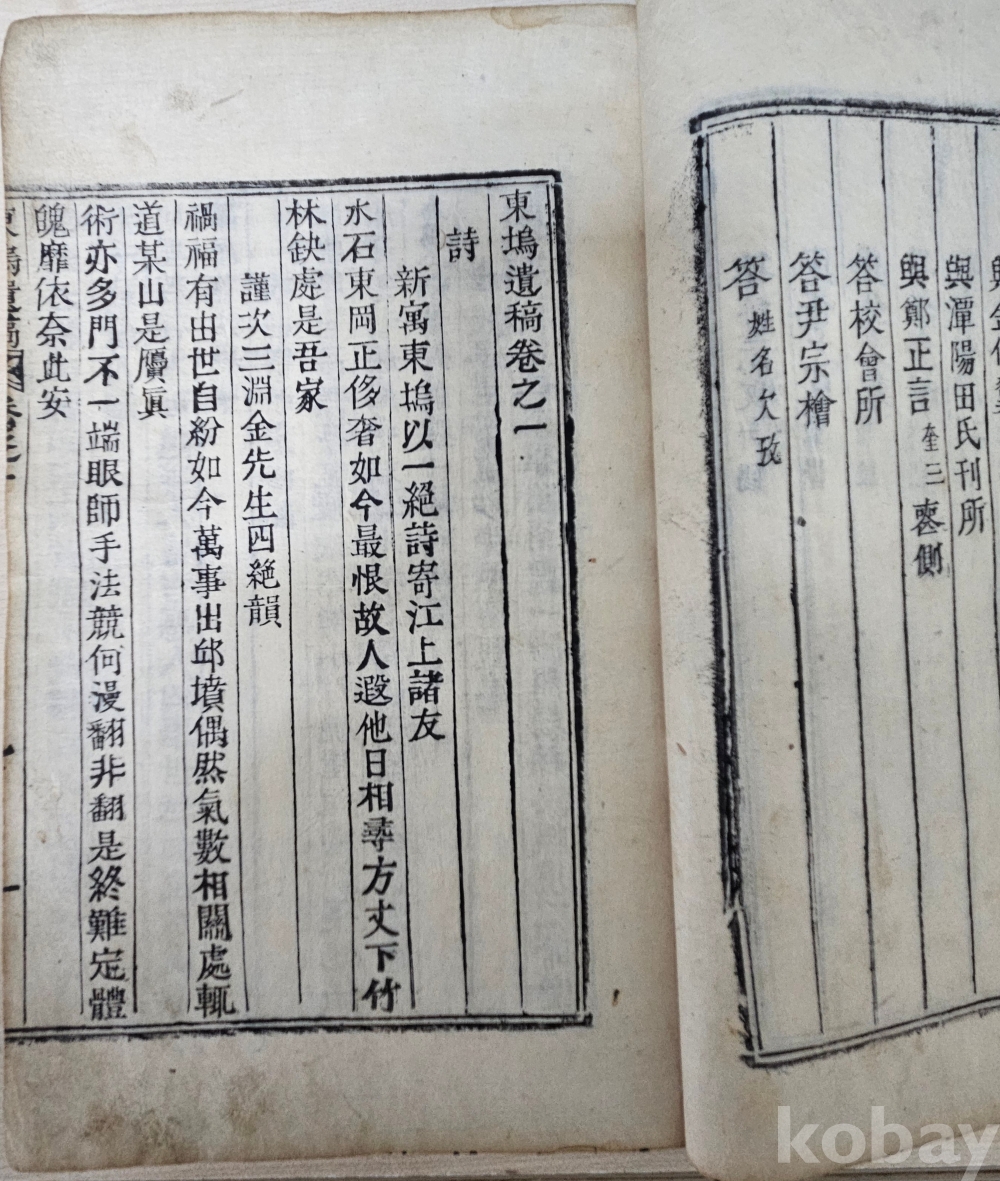 與潭陽田氏刊所
與鄭正言奎三喪側
答校會所
答尹宗檜
答姓名欠攷
東塢遺稿卷之一
詩
新寓東塢以一絕詩寄江上諸友
水石東岡正侈奢如今最恨故人遐他日相尋方丈下竹
林缺處是吾家
謹次三淵金先生四絕韻
禍福有由世自紛如今萬事出邱墳偶然氣數相關處輒
道某山是贗眞
術亦多門不一端眼師手法競何漫翻非翻是終難定體
魄靡依奈此安
kobay